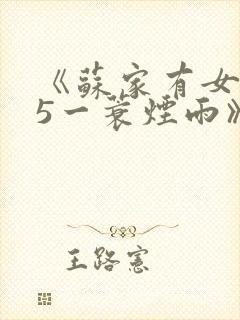 《蘇家有女
5一蓑煙雨》
王路憲